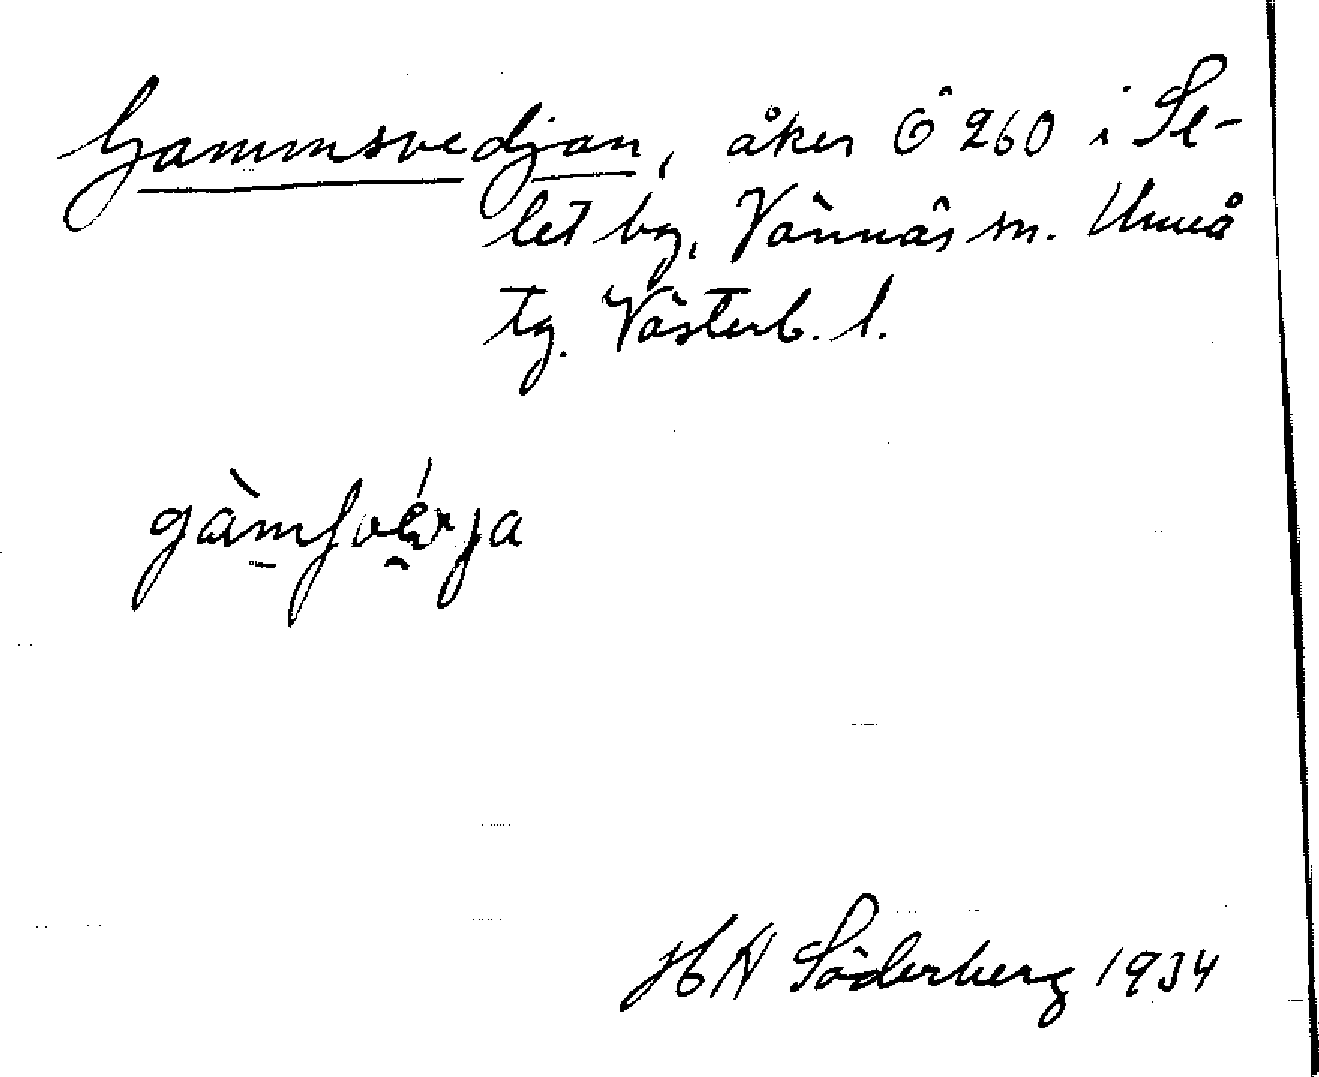 Gammsvedjan, åker Ö 260 i Se-
let by, Vännäs sn. Umeå
tg. Västerb. l.
gàmʃvérja
H A Söderberg 1934